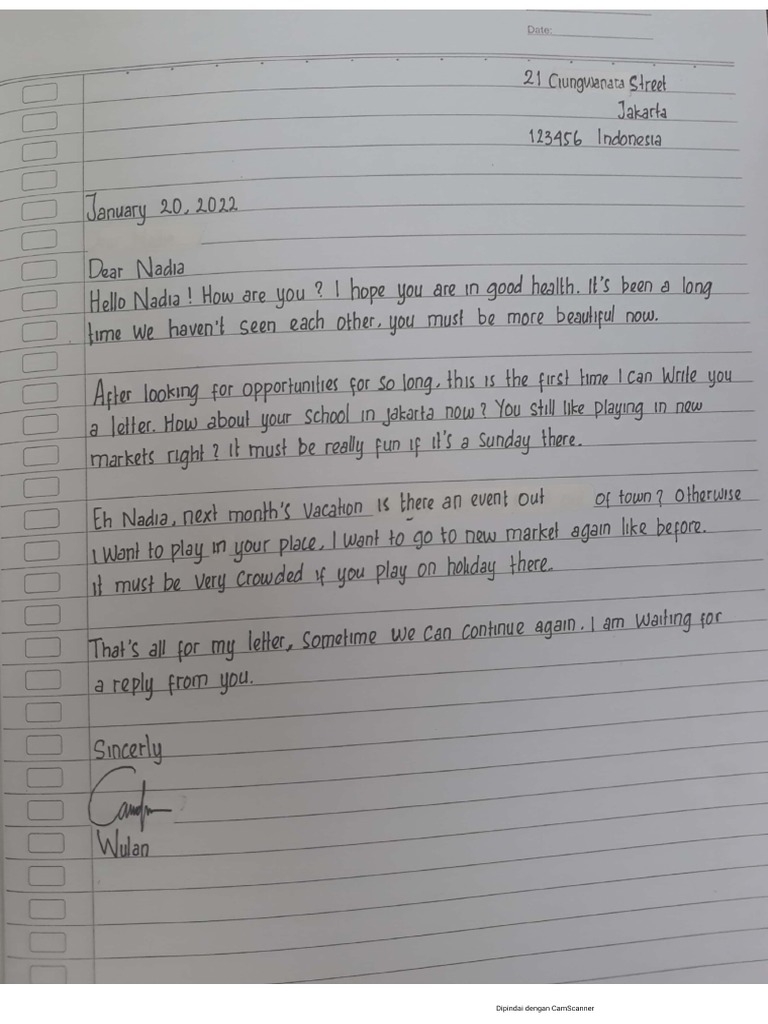 Date:
21 Ciungwanata Street
Jakarta
123456 Indonesia
January 20, 2022
Dear Nadia
Hello Nadia! How are you? I hope you are in good health. It's been a long
time we haven't seen each other, you must be more beautiful now.
After looking for opportunities for so long, this is the first time I can write you
a letter. How about your school in jakarta now? You still like playing in new
markets right? it must be really fun if it's a Sunday there.
Eh Nadia, next month's vacation is there an event out of town? Otherwise
I want to play in your place, I want to go to new market again like before.
it must be very crowded if you play on holiday there.
That's all for my letter, sometime we can continue again. I am waiting for
a reply from you.
Sincerly
Wulan
Dipindai dengan CamScanner